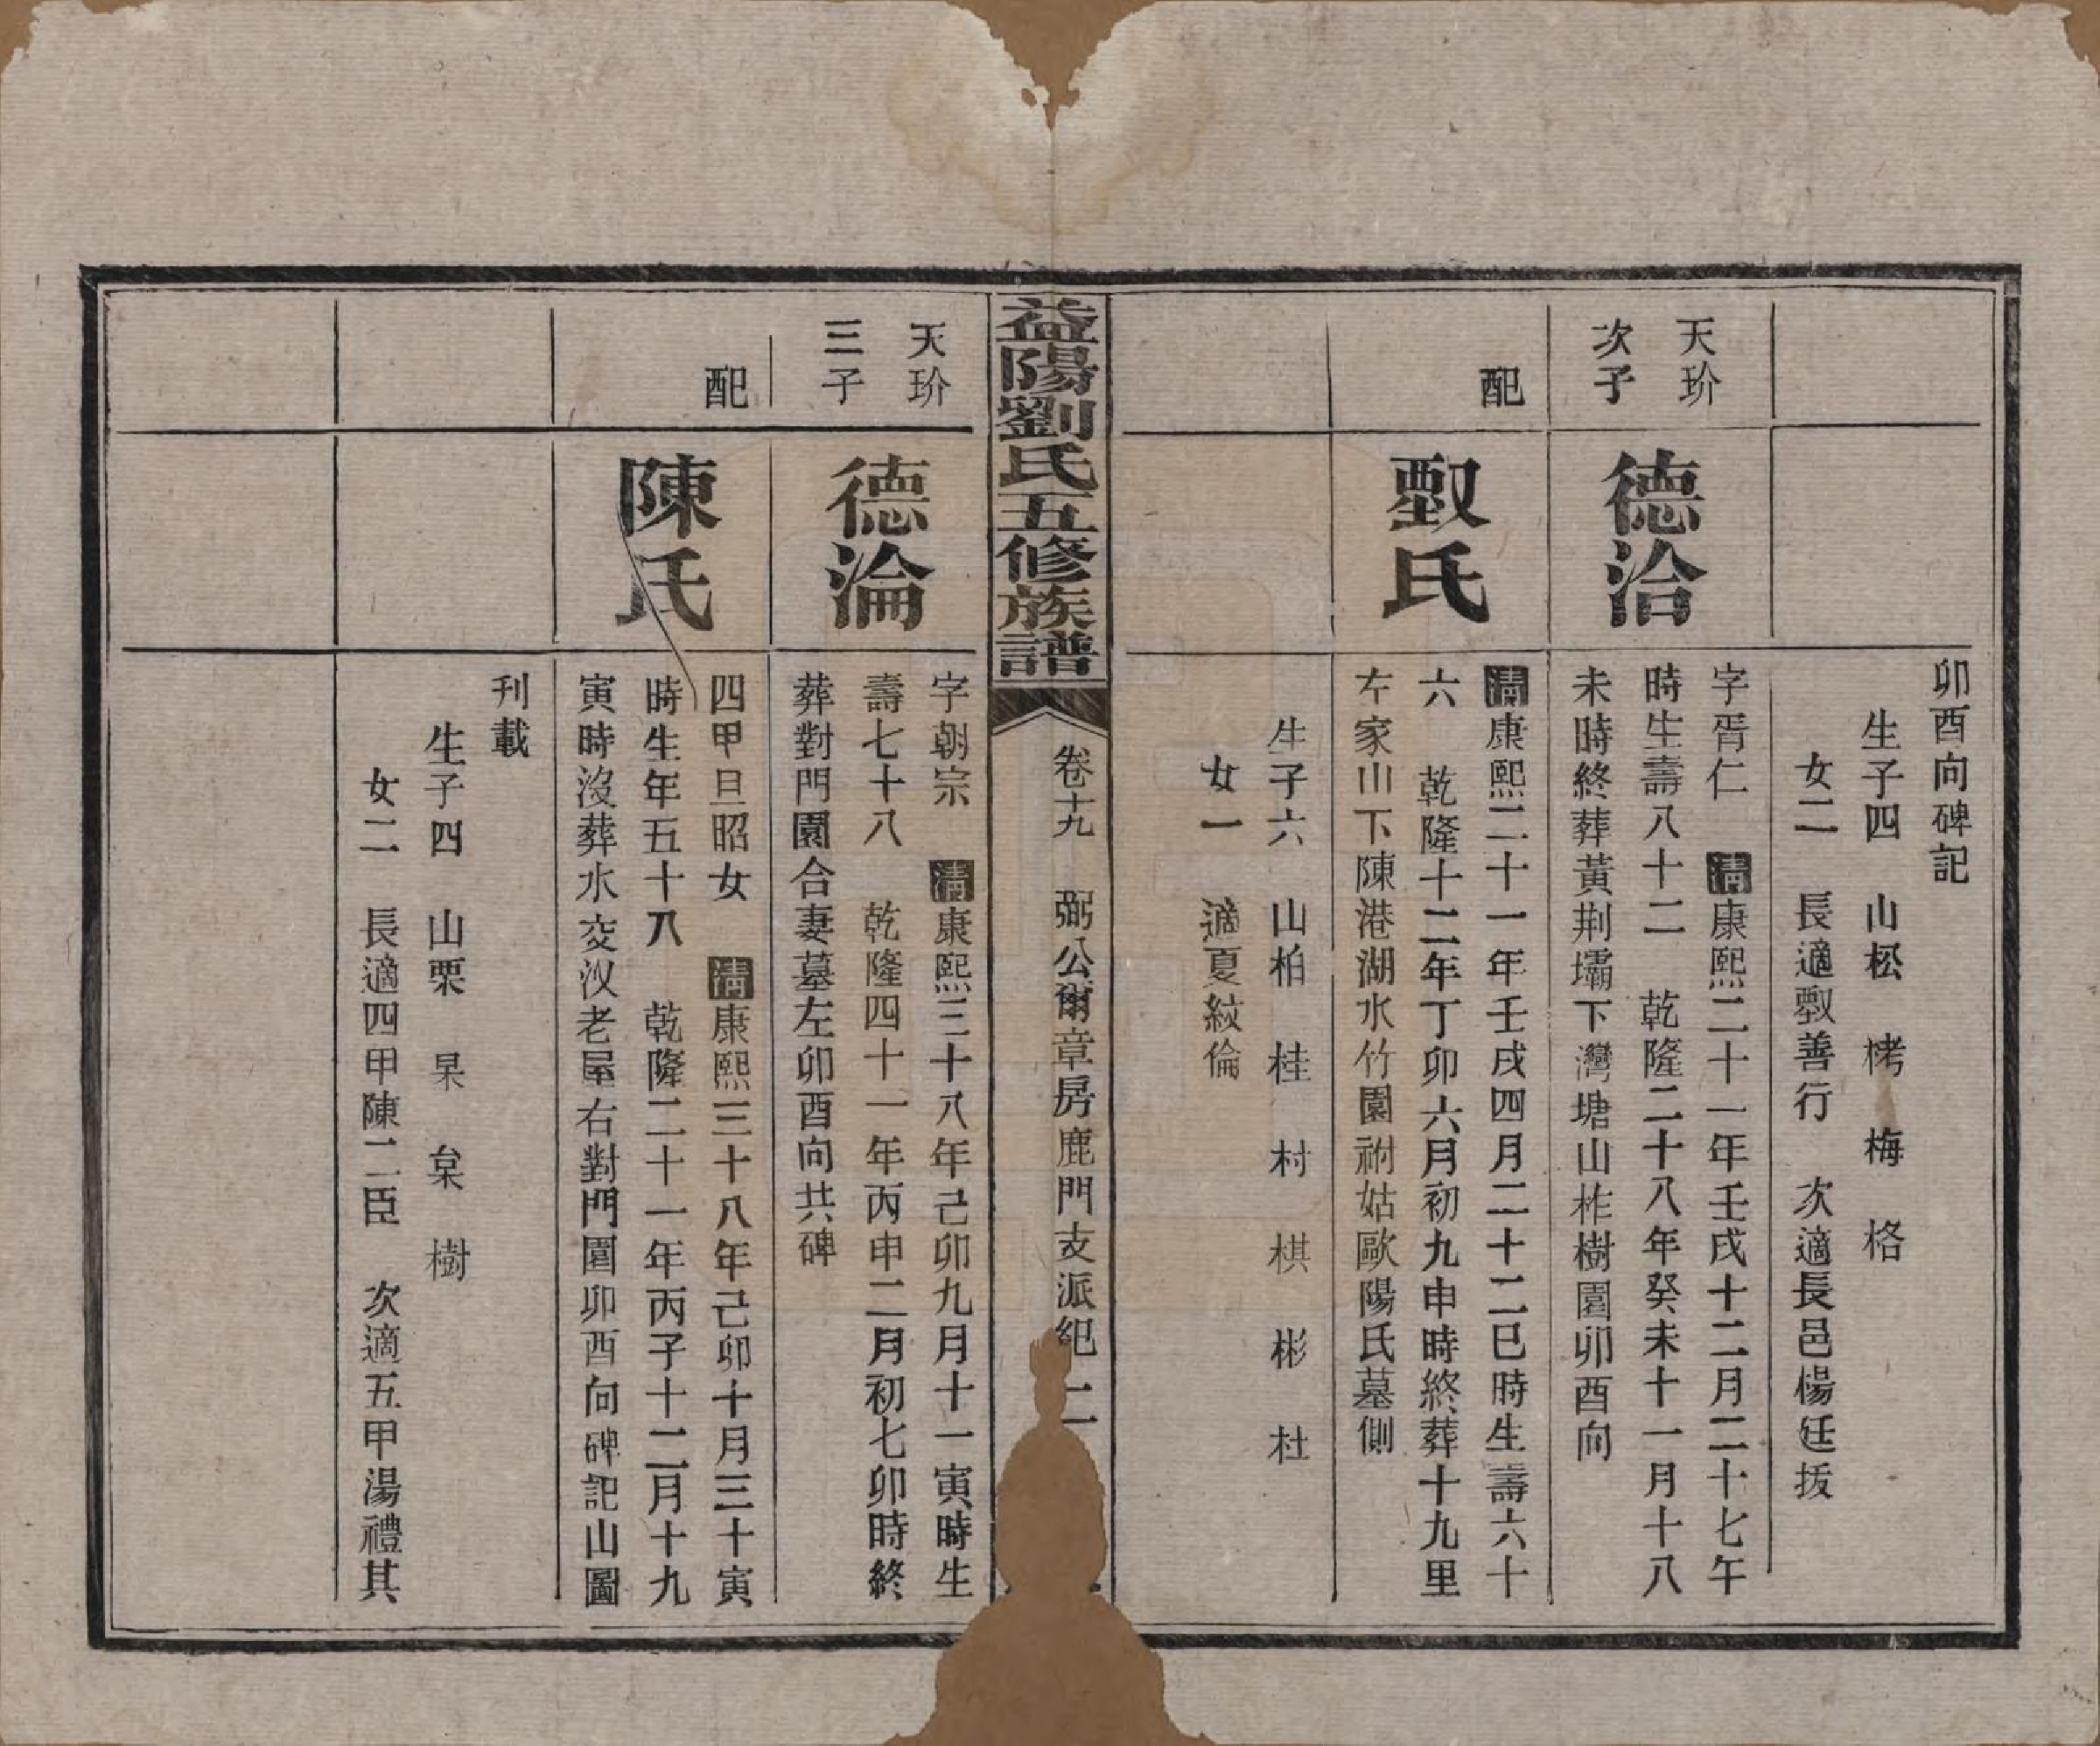 卯酉向碑記
生子四　山松　栲　梅　格
女二　長適㪟善行　次適長邑楊廷拔
天玠
次子
德洽
字胥仁　清康熙二十一年壬戌十二月二十七午
時生壽八十二　乾隆二十八年癸未十一月十八
未時終葬黃荆壩下灣塘山柞樹園卯酉向
配
氏
清康熙二十一年壬戌四月二十二巳時生壽六十
六　乾隆十二年丁卯六月初九申時終葬十九里
左家山下陳港湖水竹園祔姑歐陽氏墓側
生子六　山柏　桂　村　棋　彬　杜
女一　適夏紋倫
益陽劉氏五修族譜
卷十九　弼公爾章房鹿門支派紀　二
天玠
三子
德淪
字朝宗　清康熙三十八年己卯九月十一寅時生
壽七十八　乾隆四十一年丙申二月初七卯時終
葬對門園合妻墓左卯酉向共碑
配
陳氏
四甲旦昭女　清康熙三十八年己卯十月三十寅
時生年五十八　乾隆二十一年丙子十二月十九
寅時沒葬水交汊老屋右對門園卯酉向碑記山圖
刊載
生子四　山栗　杲　枲　樹
女二　長適四甲陳二臣　次適五甲湯禮其